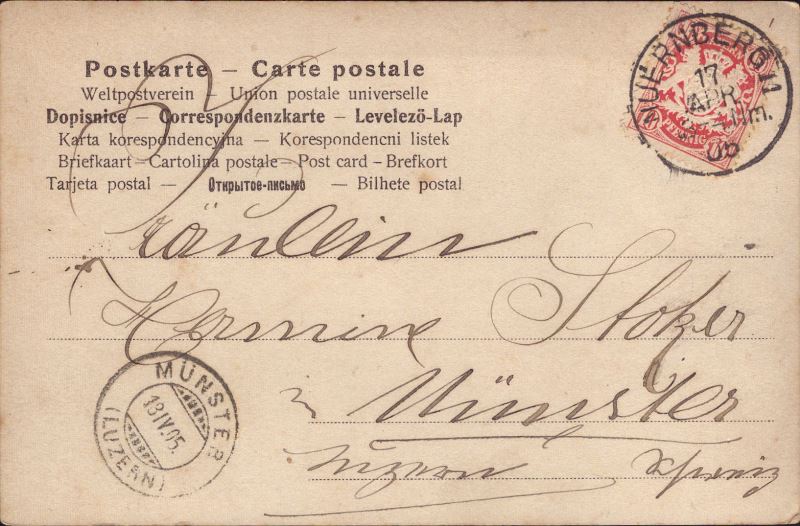 Postkarte – Carte postale
Weltpostverein – Union postale universelle
Dopisnice – Correspondenzkarte – Levelezö-Lap
Karta korespondencyjna – Korespondencni listek
Briefkaart – Cartolina postale – Post card – Brefkort
Tarjeta postal – Открытое-письмо – Bilhete postal
NUERNBERG 11
17
APR.
Vm.
05
PFENNIG
Fräulein
Hermine Stoker
in Münster
Luzern Schweiz
MÜNSTER
18 IV.05.
(LUZERN)